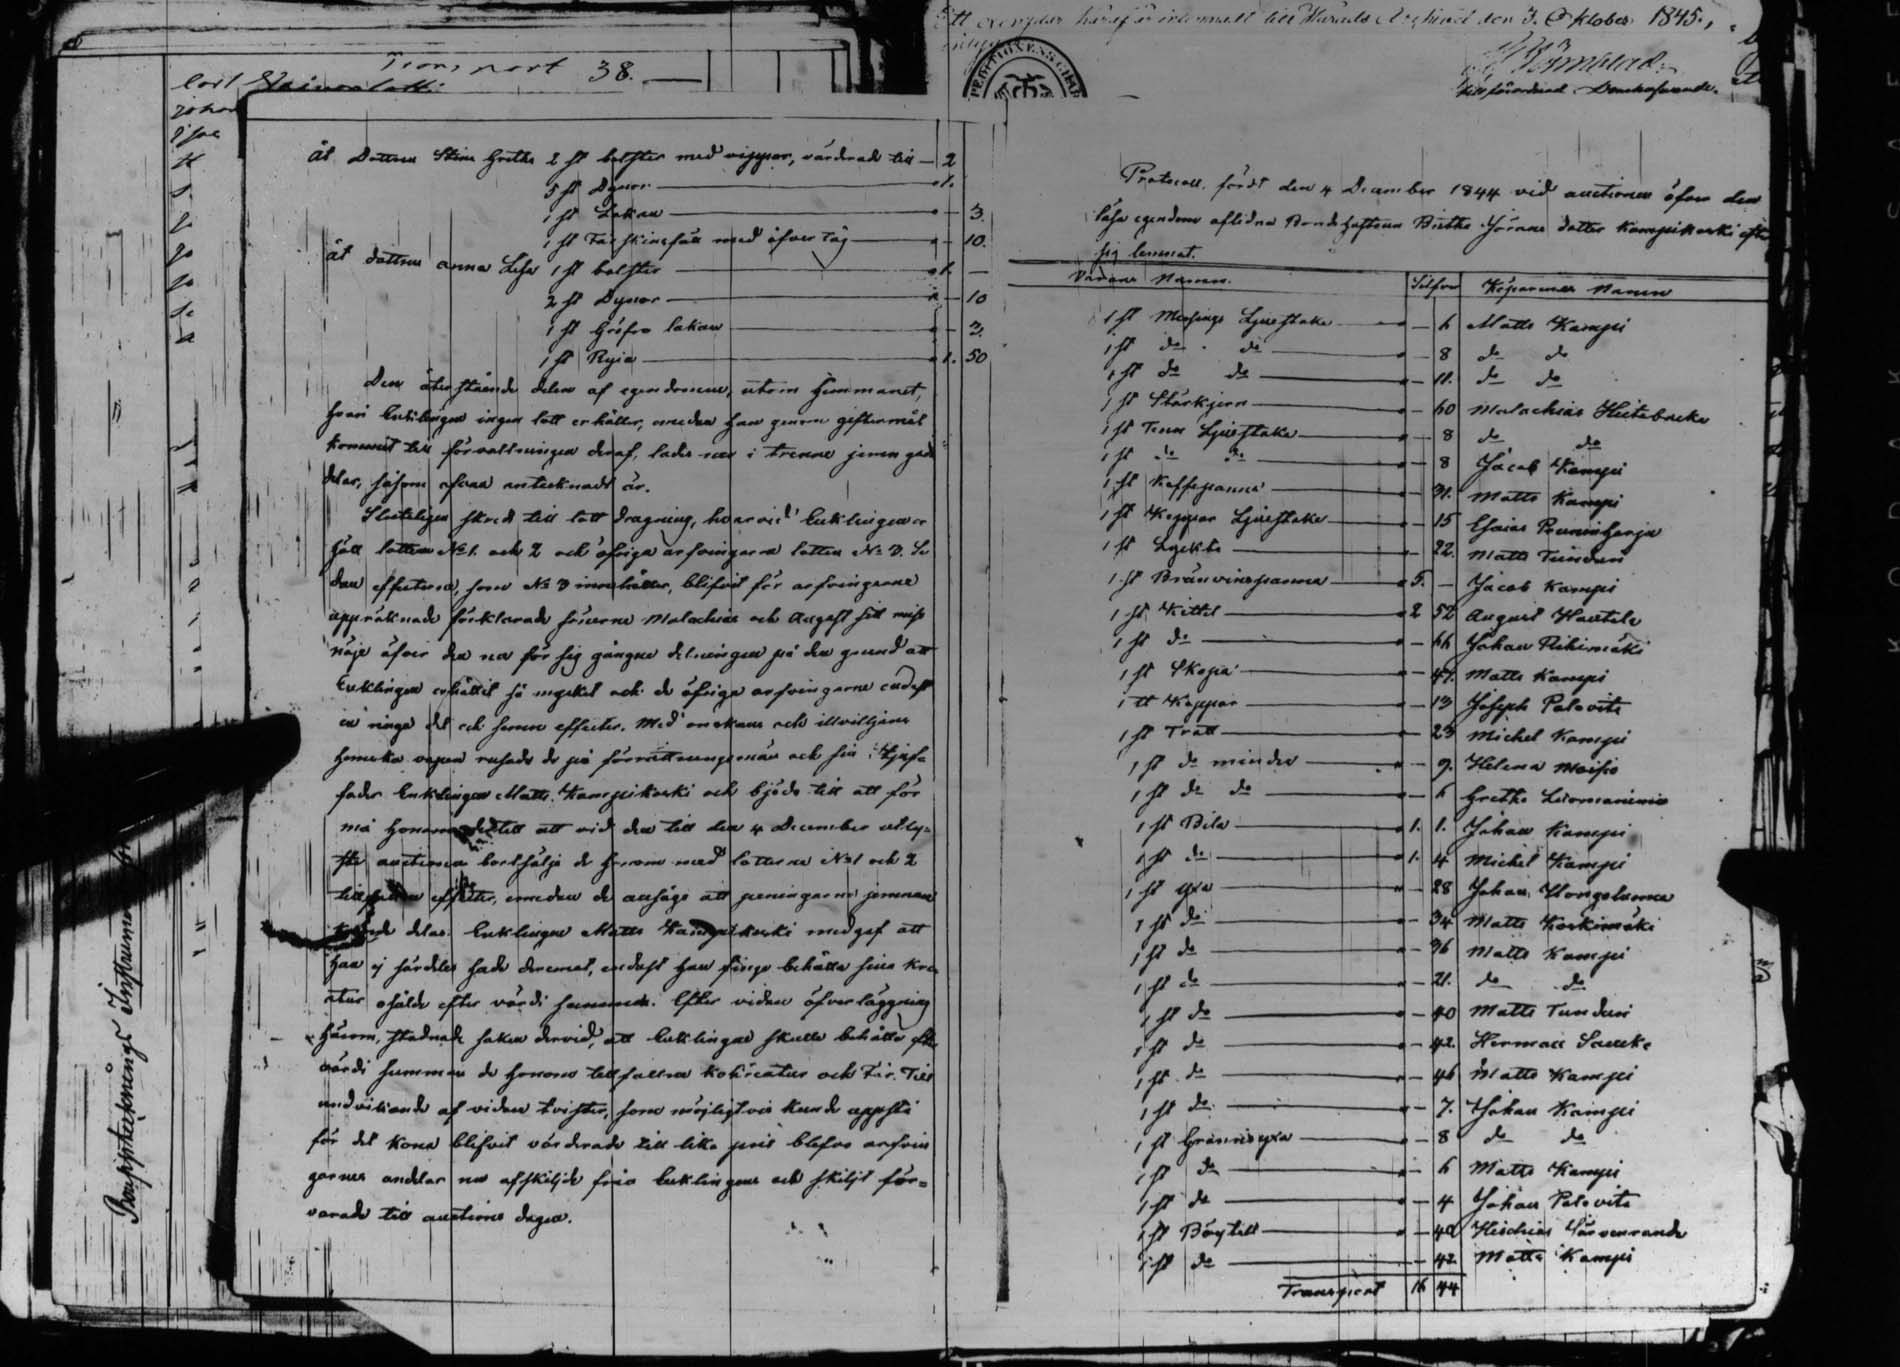 Transport 38.
Åt Dottren Stina Gretha 2 st bolster med wippor, värderade till — 2
5 st Dynor — 1.
1 st Lakan — 3.
1 st Fårskinsfäll med öfver Tög — 10.
åt dottren Anna Lisa 1 st bolster 1. —
2 st Dynor — 10
1 st Gröfre lakan — 3.
1 st Ryia 1. 50
Den återstående delen af egendomen, utom Hemmanet,
hvari Enklingen ingen lott erhåller, medan han genom giftermål
kommit till förvaltningen deraf, lades nu i trenne jemngoda
delar, såsom ofvan antecknadt är.
Sluteligen skreds till lott dragning, hvarvid Enklingen er
höll lotten No 1. och 2 och öfriga arfvingarne lotten No 3. Se
dan effecterna, som No 3 innehåller, blifvit för arfvingarne
uppräknade förklarade sönerne Malachias och August sitt miss
nöje öfver den nu för sig gångne delningen på den grund att
Enklingen erhållit så mycket och de öfriga arfvingarne endast
en ringa del och sämre effecter. Med onskans och illviljans
hemska vapen rusade de på förrättningsmän och sin Stjuf-
fader Enklingen Matts Kampikoski och bjödo till att för
må honom dertill att vid den till den 4 December utly-
ste auctionen bortsälja de honom med lotterne No 1 och 2
tillfallna effecter, emedan de ansågo att penningarne jemnare
kunde delas. Enklingen Matts Kampikoski medgaf att
han ej särdeles hade deremot, endast han finge behålla sina Kre-
atur osålda efter värdi summan. Efter vidare öfverläggning
härom, stadnade saken dervid, att Enklingen skulle behålla efter
värdi summan de honom tillfallna Kokreatur och Får. Till
undvikande af vidare tvister, som möjligtvis kunde uppstå
för det korna blifvit värderade till lika pris blefvo arfvin
garnes andelar nu afskiljde från Enklingens och skiljt för-
varade till auctions dagen.
Boupptecknings Instrument
Ett exemplar häraf är inlemnadt till Härads Archivet den 3. Oktober 1845.,
intyga
Domhafvande.
Protocoll, fördt den 4 December 1844 vid auctionen öfver den
lösa egendom aflidna Bondehustrun Birtha Jörans dotter Kampikoski efter
sig lemnat.
Varans Namn. Silfver Köparenas Namn
1 st Messings Ljusstake — 6 Matts Kampi
1 st do do — 8 do do
1 st do do — 11. do do
1 st Stärkjern — 60 Malachias Heitabacka
1 st Tenn Ljusstake — 8 do do
1 st do do — 8 Jacob Kampi
1 st Kaffepanna — 31. Matts Kampi
1 st Koppar Ljusstake — 15 Esaias Penninharju
1 st Lyckta — 22. Matts Tundur
1 st Bränvinspanna 5. — Jacob Kampi
1 st Kittel 2 52 August Hautala
1 st do — 66 Johan Pihlimäki
1 st Skopa — 47. Matts Kampi
1 tt Koppar — 13 Joseph Palovita
1 st Tratt — 23 Michel Kampi
1 st do mindre — 9. Helena Moisio
1 st do do — 6 Gretha Luomaniemi
1 st Bila 1. 1. Johan Kampi
1 st do 1. 4 Michel Kampi
1 st yxa — 28 Johan Kongoluoma
1 st do — 34 Matts Koskimäki
1 st do — 36 Matts Kampi
1 st do — 21. do do
1 st do — 40 Matts Tundur
1 st do — 42. Herman Saucko
1 st do — 46 Matts Kampi
1 st do — 7. Johan Kampi
1 st Grannisyxa — 8 do do
1 st do — 6 Matts Kampi
1 st do — 4 Johan Palovita
1 st Böxtell — 40 Hischias Järvenranda
1 st do — 42. Matts Kampi
Transport 16 44